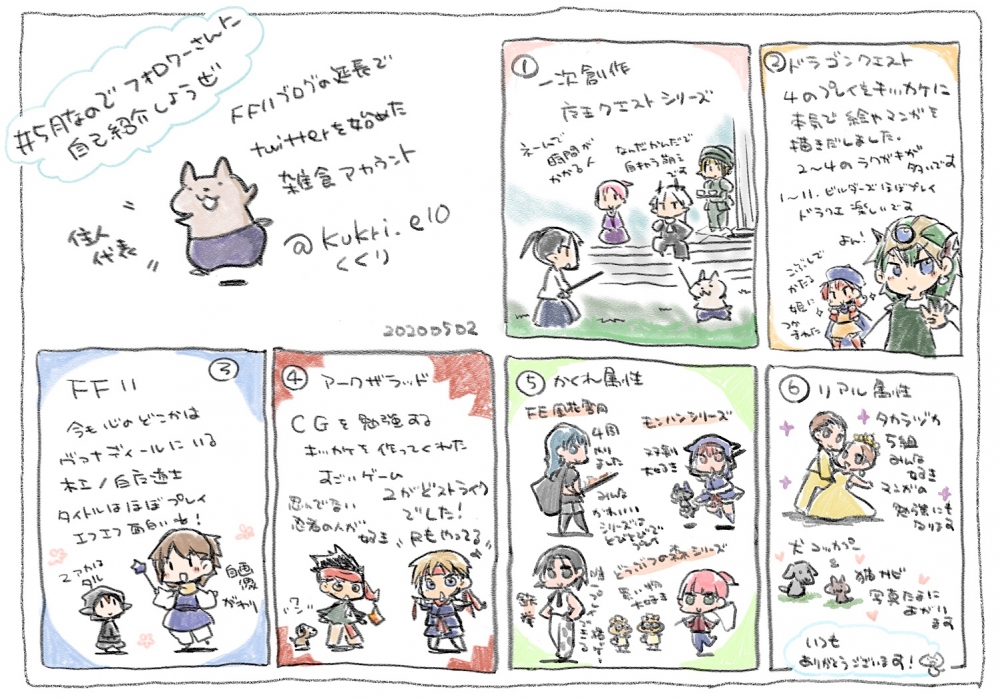 #5月なので フォロワーさんに
自己紹介しようぜ
FF11ブログの延長で
twitterを始めた
雑食アカウント
@kukri_e10
くくり
住人
代表
20200502
① 一次創作
夜王クエストシリーズ
ネームで
時間が
かかる人
なんだかんだで
です
② ドラゴンクエスト
4のプレイをキッカケに
本気で絵やマンガを
描きだしました。
2〜4のラクガキが
多いです
1〜11、ビルダーズほぼプレイ
ドラクエ楽しいです
よん!
こぶしで
かたる
姫に
つか
まれた
③ FF11
今も心のどこかは
ヴァナディールにいる
タイトルはほぼプレイ
エフエフ面白いね!
2アカは
タル
自画像
がわり
④ アークザラッド
CGを勉強する
キッカケを作ってくれた
すごいゲーム
2がどストライク
でした!
忍んでない
忍者の人が
好き
Rもやってるよ
ワン
⑤ かくれ属性
FE風花雪月
4周
やりました
みんな
かわいい
シリーズは
とびとびで
プレイ
モンハンシリーズ
大好き
鉄拳
唯一
できる
どうぶつの森シリーズ
大好き
⑥ リアル属性
タカラヅカ
5組
みんな
好き
マンガの
勉強にも
なります
犬 コッカプー
&
猫 カビ
写真たまに
あがり
ます
いつも
ありがとうございます!